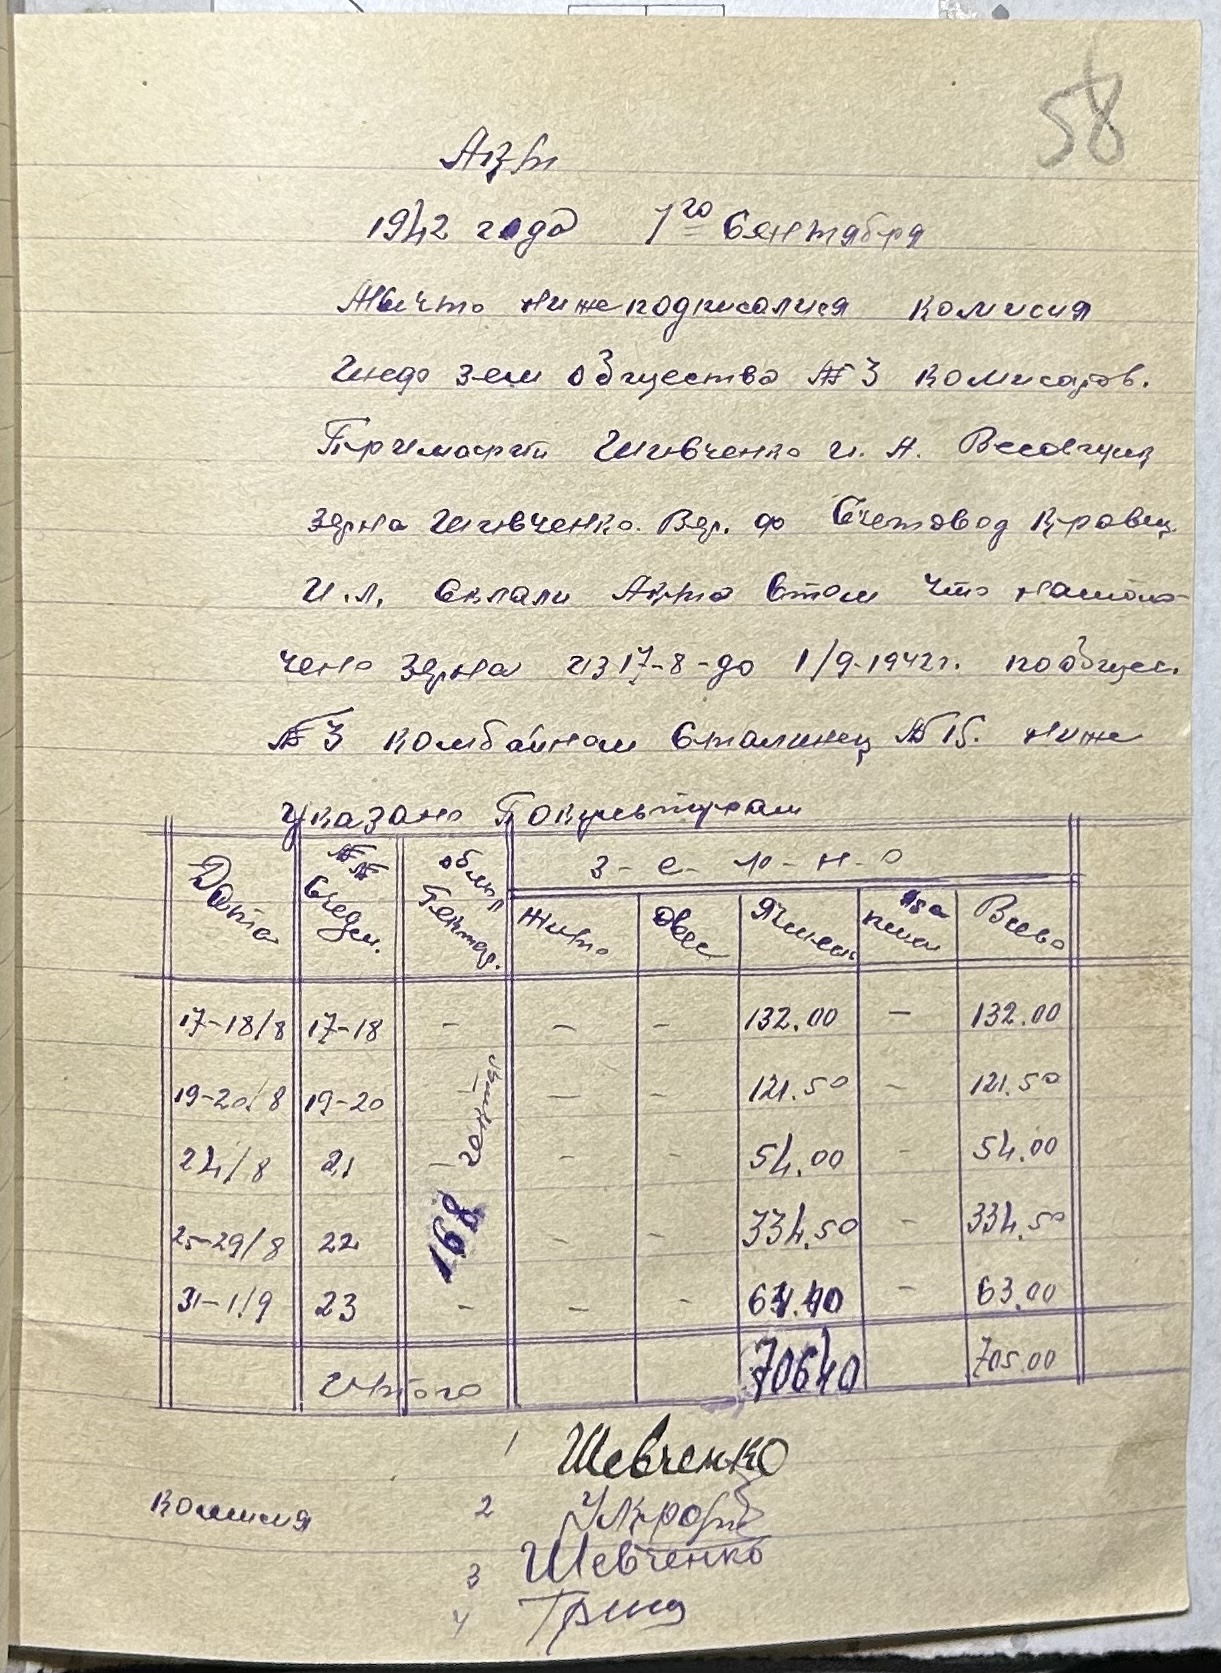 58
Акт
1942 года 1го Сентября
Мычто нижеподписалися комисия
зем общества № 3 комисаров.
Примарии Шивченко И. А. Весовщик
зерна Шивченко. Вер. ф Счетовод Кравец
И. Л. Склали Акта Втом что намоло-
чено зерна из 17-8-до 1/9-1942г. пообщес.
№ 3 комбайном Сталинец № 15. ниже
Указано Покультурам
Дата №№ Сведен. Гектар. З-е-р-н-о
Жито Овес Ячмень Всево
17-18/8 17-18 - - - 132.00 - 132.00
19-20/8 19-20 - - - 121.50 - 121.50
24/8 21 - - - 54.00 - 54.00
25-29/8 22 168 - - 334.50 - 334.50
31-1/9 23 - - - 64.40 - 63.00
Итого 70640 705.00
1 Шевченко
комисия 2
3 Шевченко
4